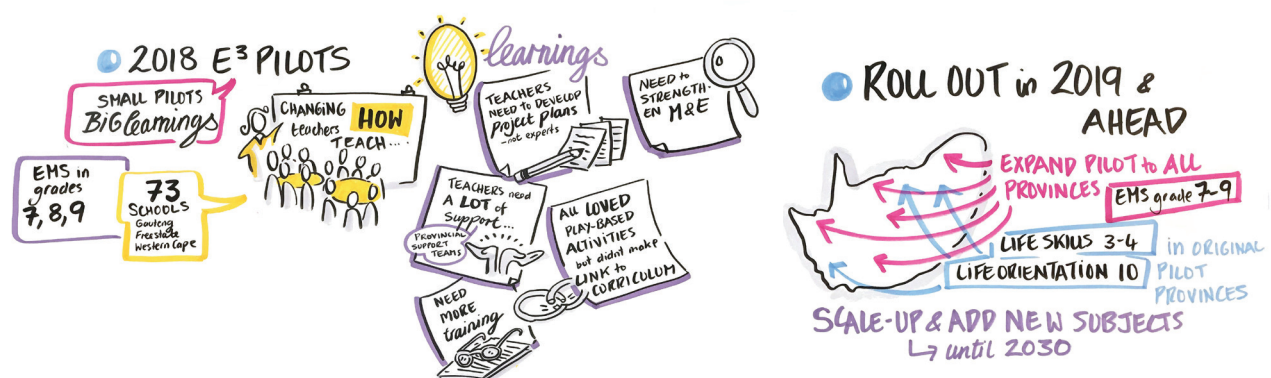 2018 E³ PILOTS
SMALL PILOTS
BiG learnings
EMS in
grades
7,8,9
73
SCHOOLS
Gauteng
Freestate
Western Cape
CHANGING
teachers
HOW
TEACH....
learnings
TEACHERS
NEED to DEVELOP
Project Plans
-not experts
NEED to
STRENGTH-
EN M&E
TEACHERS need
A LOT of
Support...
PROVINCIAL
SUPPORT
TEAMS
All LOVED
PLAY-BASED
ACTIVITIES
but didn't make
LINK to
CORRICULUM
NEED
MORE
training
ROLL OUT in 2019 &
AHEAD
EXPAND PILOT to ALL
PROVINCES
EMS grade 7-9
LIFE SKILLS 3-4
LIFE ORIENTATION 10
in ORIGINAL
PILOT
PROVINCES
SCALE-UP & ADD NEW SUBJECTS
↳ until 2030